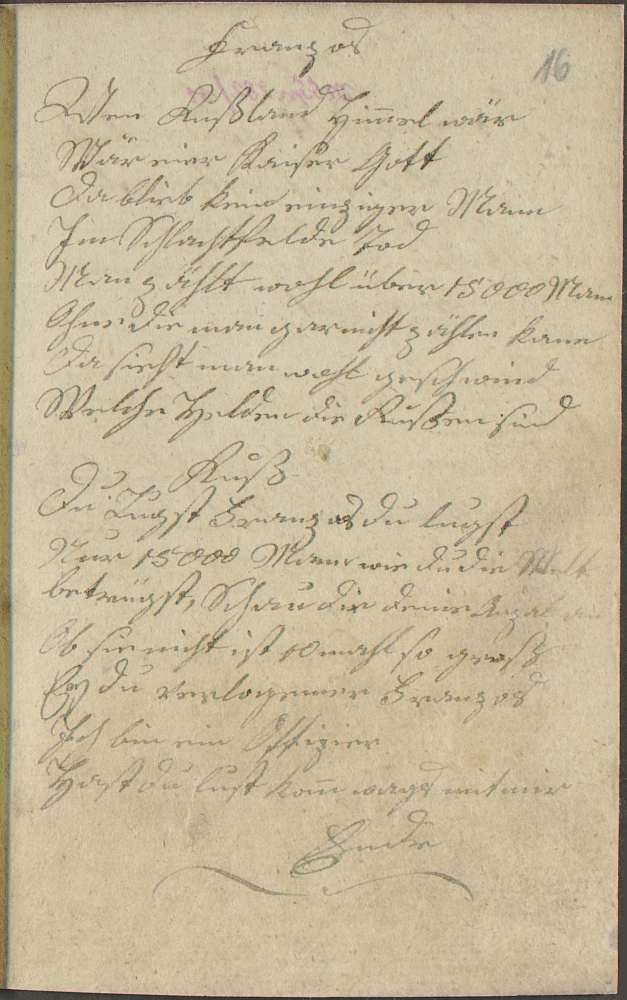 Franzos
16
Wen Rußland Himmel wär
Wär eier Kaiser Gott
Da blieb kein einziger Mann
Im Schlachtfelde Tod
Man zählt wohl über 15000 Man
Ohne die man gar nicht zählen kann
Da sieht man wohl geschwind
Welche Helden die Rußen sind
Ruß
Du Lugst Franzos du lugst
Nur 15000 Mann wie du die Welt
betrügst, Schau dir deine
Ob sie nicht ist 10 mahl so groß
Ey du verlogener Franzos
Ich bin ein Offizier
Hast du lust kom wags mit mir
Ende